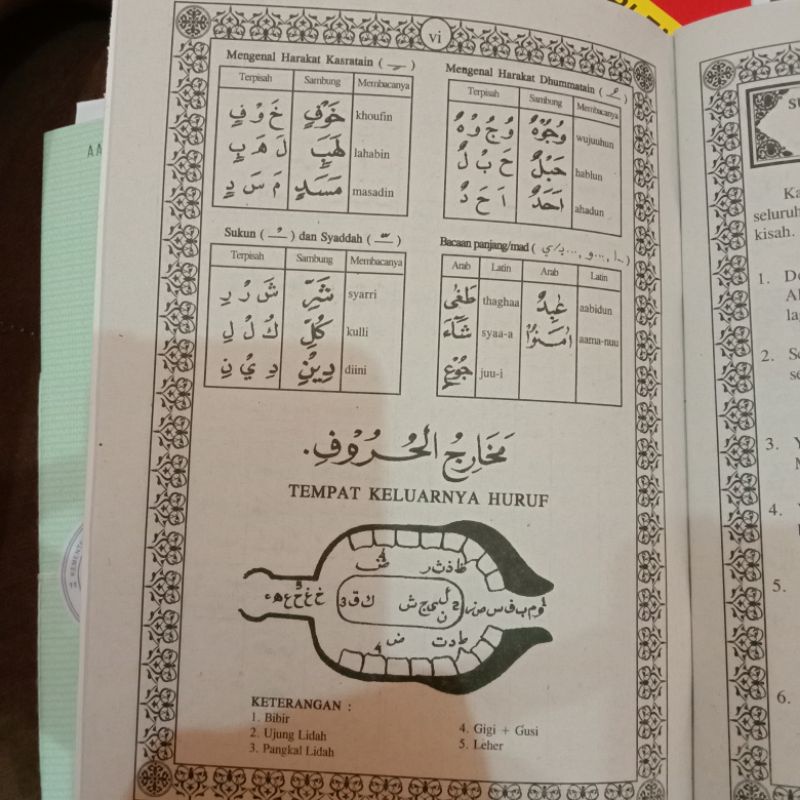 vi
Mengenal Harakat Kasratain ( ـــٍ )
Terpisah Sambung Membacanya
خَ وْ فٍ خَوْفٍ khoufin
لَ هَ بٍ لَهَبٍ lahabin
مَ سَ دٍ مَسَدٍ masadin
Mengenal Harakat Dhummatain ( ـــٌ )
Terpisah Sambung Membacanya
وُ جُ وْ هٌ وُجُوْهٌ wujuuhun
حَ بْ لٌ حَبْلٌ hablun
اَ حَ دٌ اَحَدٌ ahadun
Sukun ( ـــْ ) dan Syaddah ( ـــّ )
Terpisah Sambung Membacanya
شَ رْ رِ شَرِّ syarri
كُ لْ لِ كُلِّ kulli
دِ يْ نِ دِيْنِ diini
Bacaan panjang/mad
Arab Latin Arab Latin
طَغٰى thaghaa عٰبِدٌ aabidun
شَآءَ syaa-a اٰمَنُوْا aama-nuu
جُوْعٍ juu-i
مَخَارِجُ الْحُرُوْفِ.
TEMPAT KELUARNYA HURUF
4 ض ط ذ ث ر
5
خ غ ح ع ه ء 3 ك ق ش ج ي ل ن 2
4 ض ط د ت
KETERANGAN :
1. Bibir
2. Ujung Lidah
3. Pangkal Lidah
4. Gigi + Gusi
5. Leher
AA
SU
Ka
seluruh
kisah.
1. De
Al
la
2. Se
se
3. Y
M
4.
5.
6.